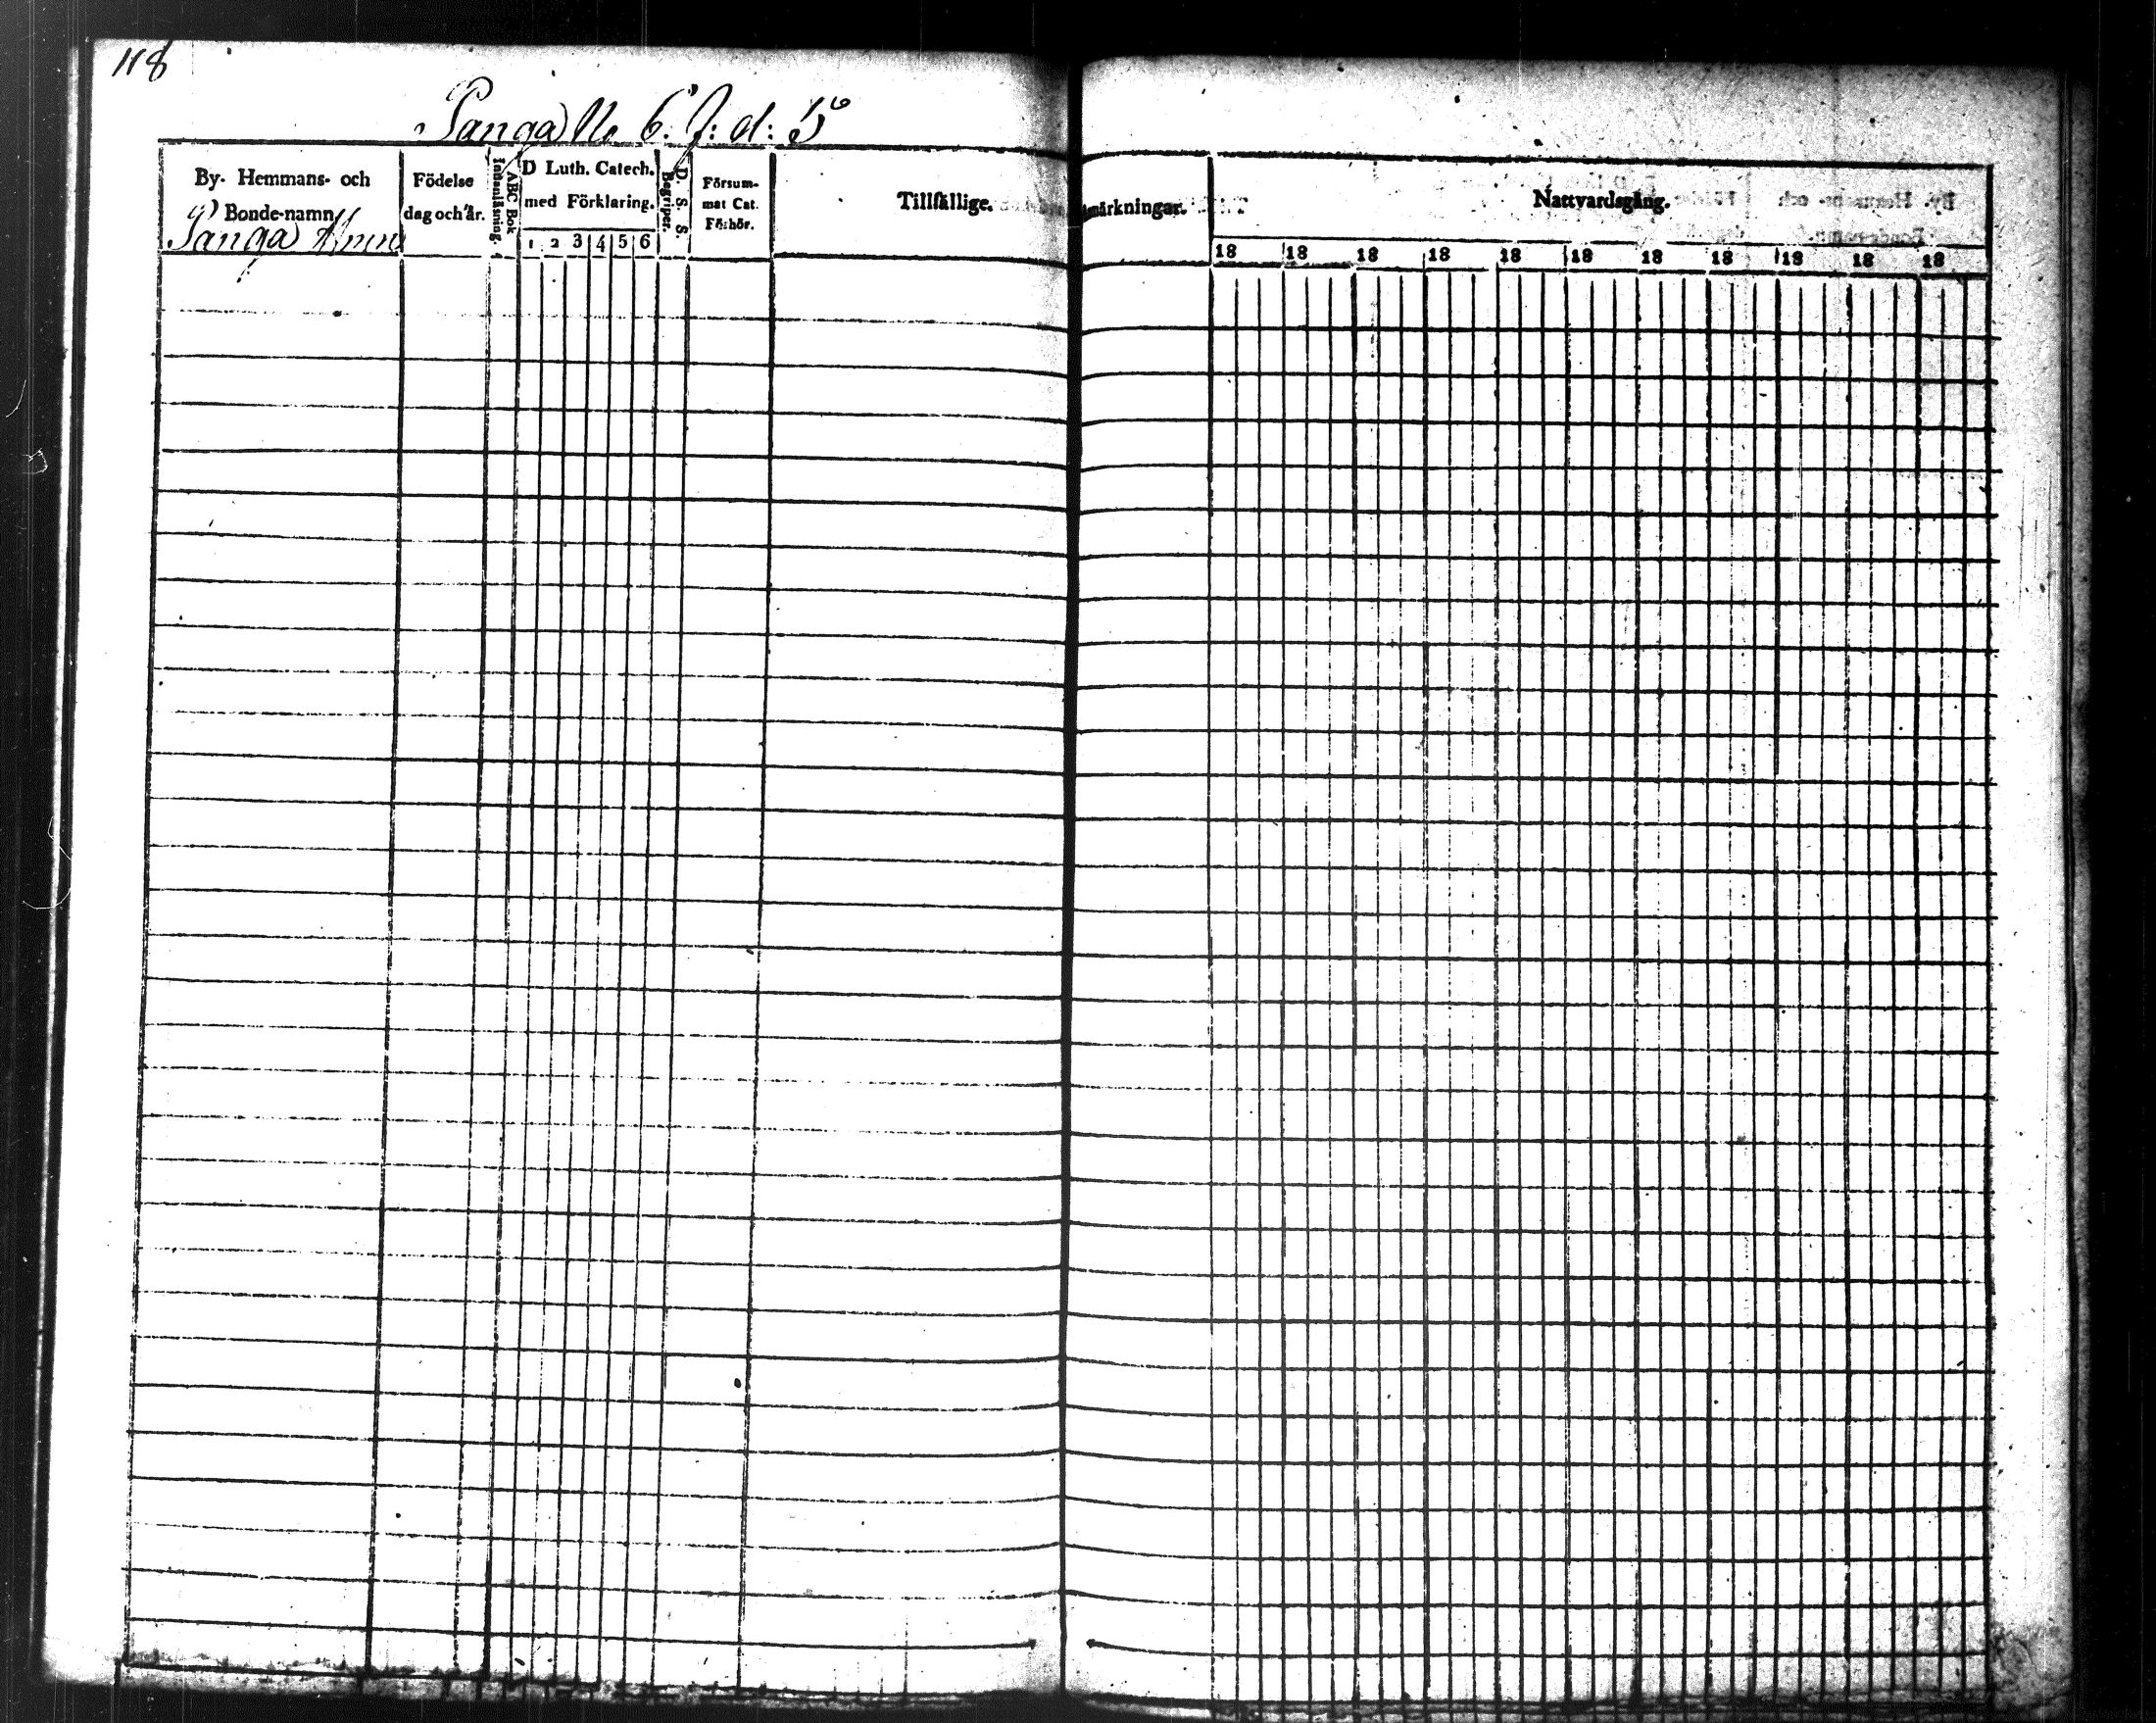 118
Panga No 6. J: d: 5
By- Hemmans- och
Bonde-namn
Panga
Födelse
dag och år.
Innanläsning.
ABC Bok
D Luth. Catech.
med Förklaring.
1 2 3 4 5 6
D. S. S.
Begriper.
Försum-
mat Cat.
Förhör.
Tillfällige.
Anmärkningar.
Nattvardsgång.
18 18 18 18 18 18 18 18 18 18 18